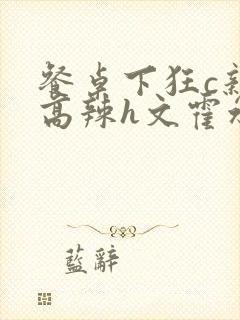 餐桌下狂c新
高辣h文霍水
藍辭